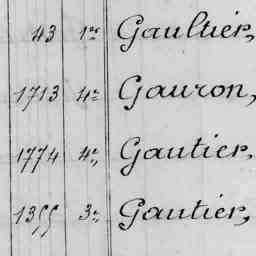 43 1er Gaultier,
1713 4e Gauron,
1774 4e Gautier,
1355 3e Gautier,